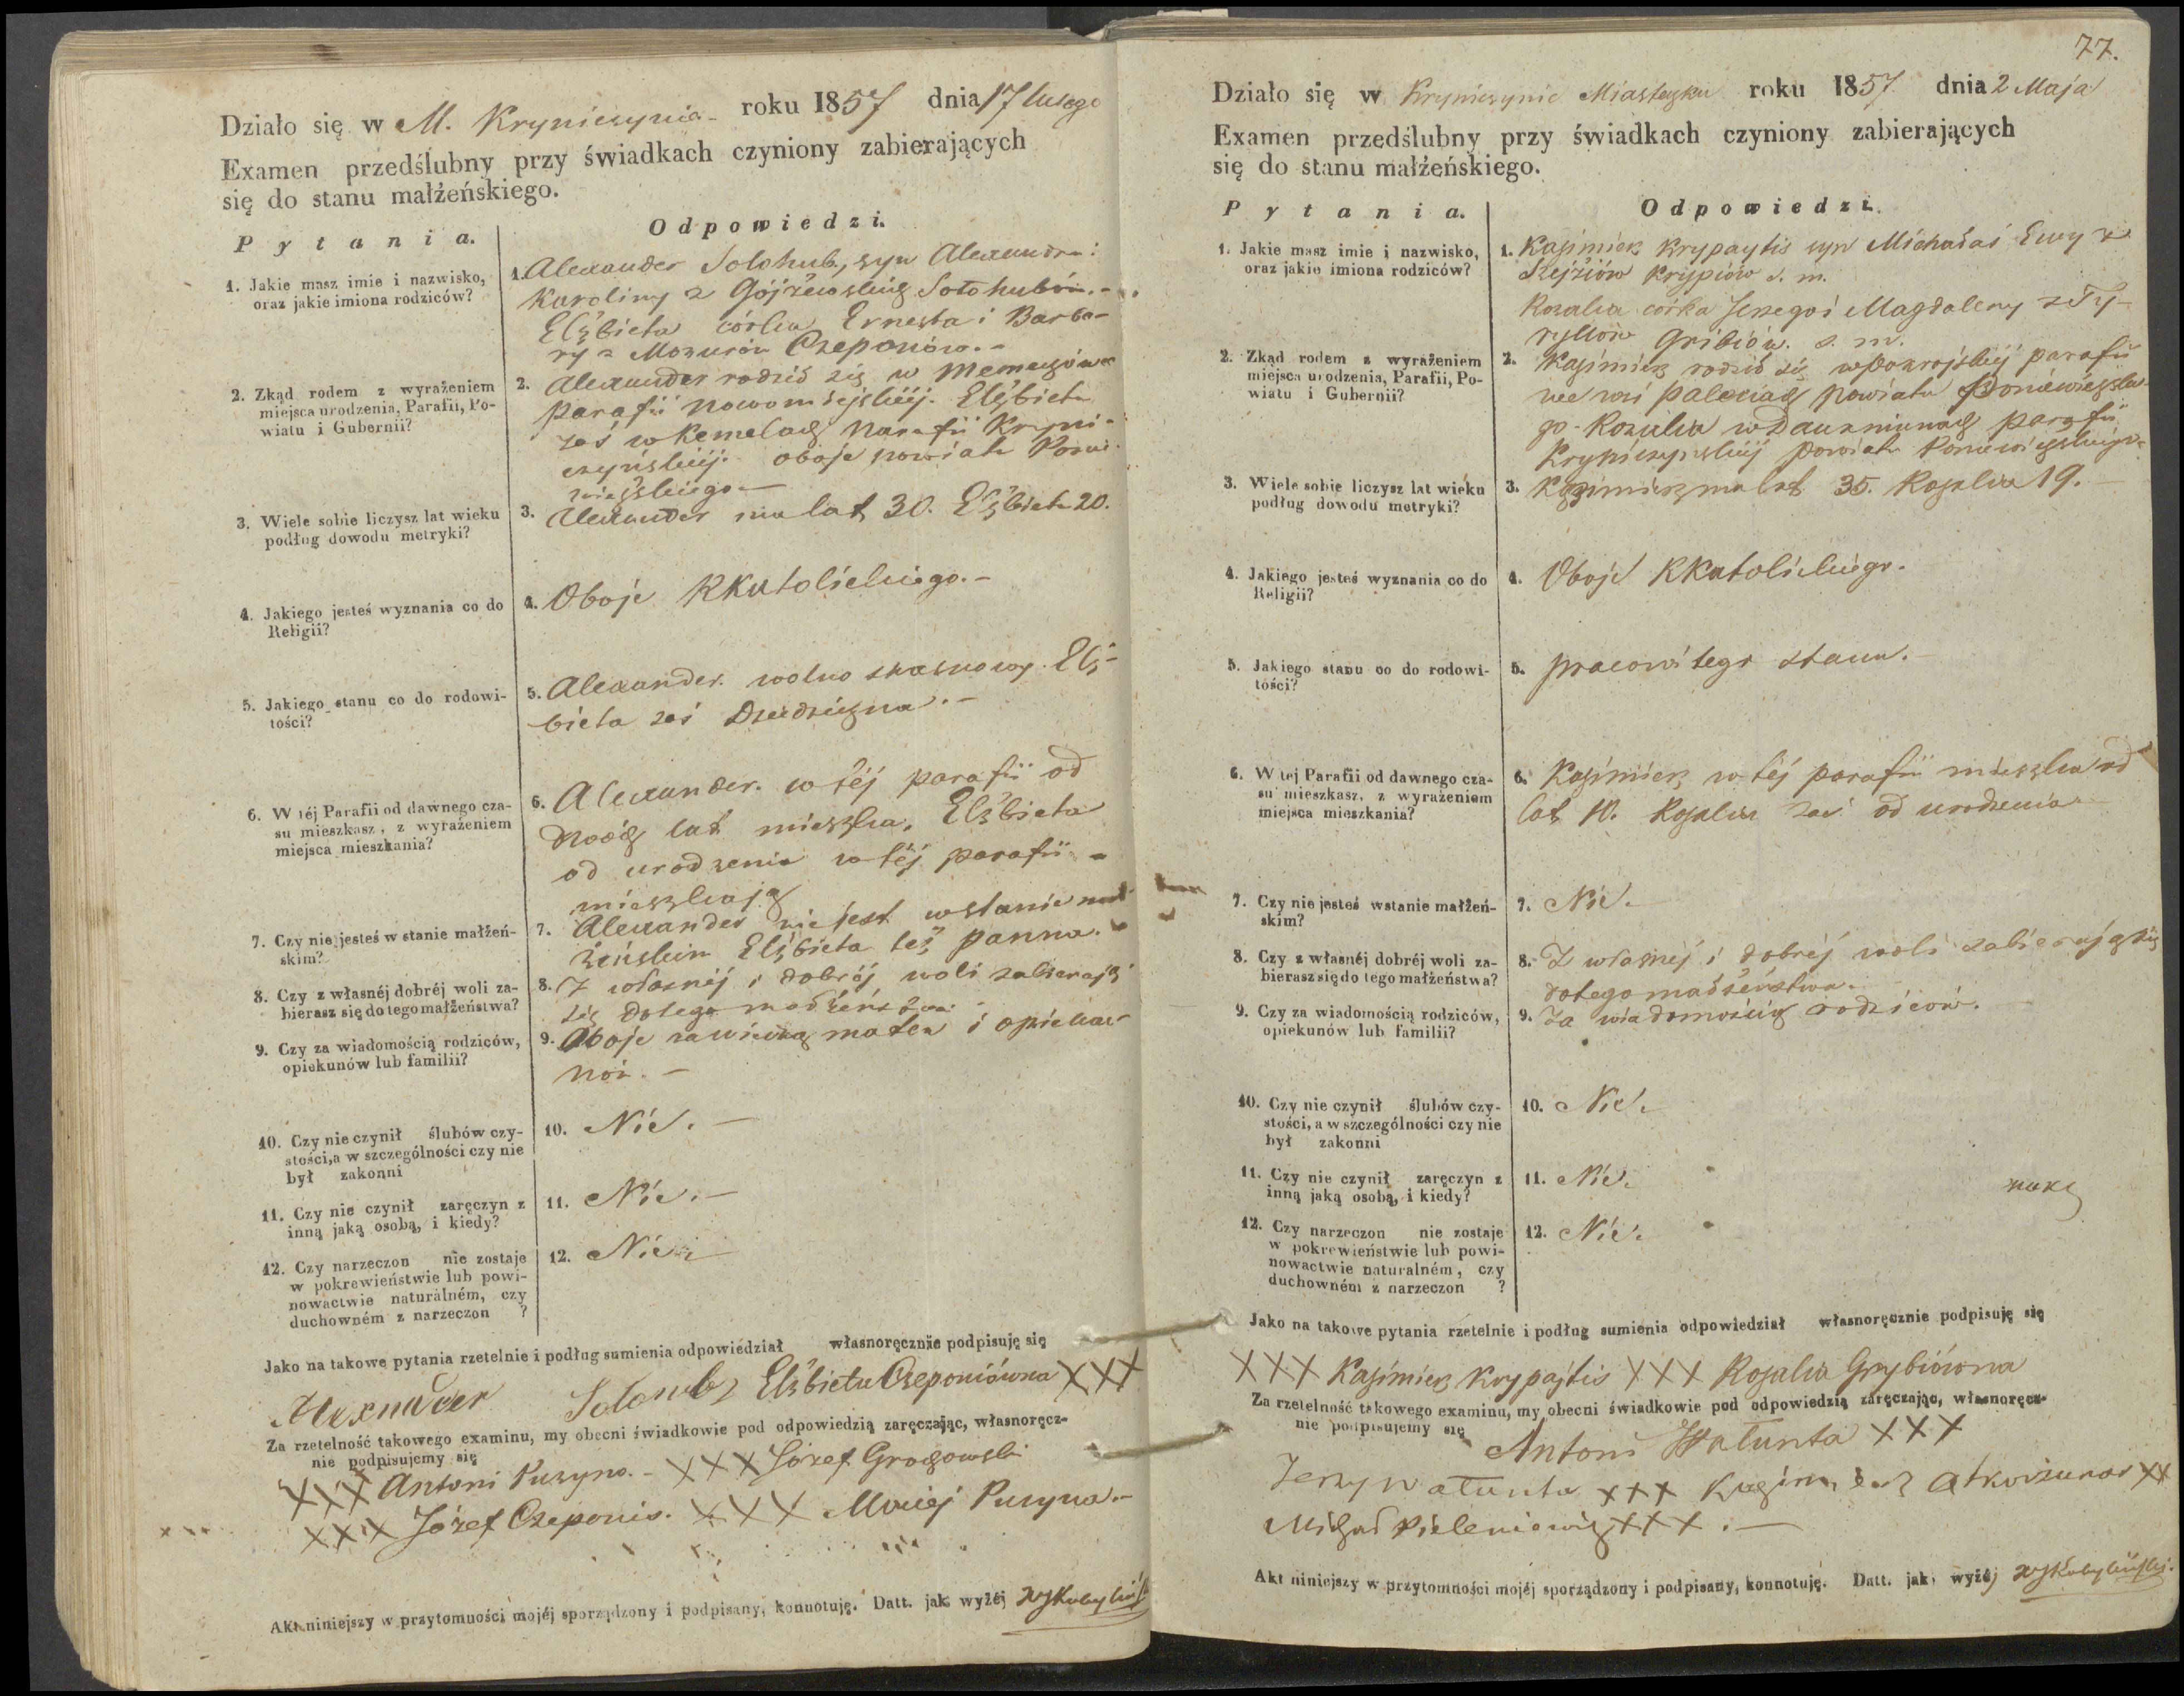 Działo się w M. Kryniczynie roku 1857 dnia 17 lutego
Examen przedślubny przy świadkach czyniony zabierających
się do stanu małżeńskiego.
Pytania.
Odpowiedzi.
1. Jakie masz imie i nazwisko,
oraz jakie imiona rodziców?
1. Alexander Solohub, syn Alexandra i
Karoliny z Gojżewskich Sołohubów.-
Elżbieta córka Ernesta i Barba-
ry z Mozurów Czeponów.-
2. Zkąd rodem z wyrażeniem
miejsca urodzenia, Parafii, Po-
wiatu i Gubernii?
2. Alexander rodził się w
parafii nowomiejskiéj. Elżbieta
zaś w Kemelach parafii Kryni-
czyńskiéj. oboje powiatu Ponie-
wieżskiego-
3. Wiele sobie liczysz lat wieku
podług dowodu metryki?
3. Alexander ma lat 30. Elżbieta 20.
4. Jakiego jesteś wyznania co do
Religii?
4. Oboje RKatolickiego.-
5. Jakiego stanu co do rodowi-
tości?
5. Alexander. wolno Elż-
bieta zaś
6. W téj Parafii od dawnego cza-
su mieszkasz, z wyrażeniem
miejsca mieszkania?
6. Alexander. w téj parafii od
lat mieszka. Elżbieta
od urodzenia w téj parafii -
mieszkają
7. Czy nie jesteś w stanie małżeń-
skim?
7. Alexander nie jest w stanie mał-
żeńskim Elżbieta też panna.
8. Czy z własnéj dobréj woli za-
bierasz się do tego małżeństwa?
8. Z własnéj i dobréj woli zabierają
się do tego małżeństwa
9. Czy za wiadomością rodziców,
opiekunów lub familii?
9. Oboje matek i opieku-
nów.-
10. Czy nie czynił ślubów czy-
stości, a w szczególności czy nie
był zakonni
10. Nie.-
11. Czy nie czynił zaręczyn z
inną jaką osobą, i kiedy?
11. Nie.-
12. Czy narzeczon nie zostaje
w pokrewieństwie lub powi-
nowactwie naturalném, czy
duchowném z narzeczon ?
12. Nie.
Jako na takowe pytania rzetelnie i podług sumienia odpowiédział własnoręcznie podpisuję się
Alexander Elżbieta Czeponiówna XXX
Za rzetelność takowego examinu, my obecni świadkowie pod odpowiedzią zaręczając, własnoręcz-
nie podpisujemy się
XXX Antoni Puzyno.- XXX Józef Grochowski
XXX Józef Czeponis. XXX Maciej Puzyna.-
Akt niniejszy w przytomności mojéj sporządzony i podpisany, konnotuję. Datt. jak wyżéj
77.
Działo się w Kryniczynie Miasteczku roku 1857 dnia 2 Maja
Examen przedślubny przy świadkach czyniony zabierających
się do stanu małżeńskiego.
Pytania.
Odpowiedzi.
1. Jakie masz imie i nazwisko,
oraz jakie imiona rodziców?
1. Kazimierz Krypaytis syn Michała i Ewy z
Krypiów s. m.
Rozalia córka Jerzego i Magdaleny z Ty-
Gribiów. s. m.
2. Zkąd rodem z wyrażeniem
miejsca urodzenia, Parafii, Po-
wiatu i Gubernii?
2. Kazimierz rodził się w Pokrojskiéj parafii
we wsi powiatu Poniewiezskie-
go. Rozalia w parafii
Kryniczyńskiéj powiatu Poniewiezskiego.
3. Wiele sobie liczysz lat wieku
podług dowodu metryki?
3. Kazimierz ma lat 35. Rozalia 19.-
4. Jakiego jesteś wyznania co do
Religii?
4. Oboje RKatolickiego.
5. Jakiego stanu co do rodowi-
tości?
5. pracowitego stanu.-
6. W tej Parafii od dawnego cza-
su mieszkasz, z wyrażeniem
miejsca mieszkania?
6. Kazimierz w téj parafii mieszka od
lat 10. Rozalia zaś od urodzenia
7. Czy nie jesteś wstanie małżeń-
skim?
7. Nie.
8. Czy z własnéj dobréj woli za-
bierasz się do tego małżeństwa?
8. Z własnéj i dobréj woli zabierają się
do tego małżeństwa.
9. Czy za wiadomością rodziców,
opiekunów lub familii?
9. Za wiadomością rodziców.
10. Czy nie czynił ślubów czy-
stości, a w szczególności czy nie
był zakonni
10. Nie.
11. Czy nie czynił zaręczyn z
inną jaką osobą, i kiedy?
11. Nie.
12. Czy narzeczon nie zostaje
w pokrewieństwie lub powi-
nowactwie naturalném, czy
duchowném z narzeczon ?
12. Nie.
Jako na takowe pytania rzetelnie i podług sumienia odpowiédział własnoręcznie podpisuję się
XXX Kazimierz Krypajtis XXX Rozalia Grybiówna
Za rzetelność takowego examinu, my obecni świadkowie pod odpowiedzią zaręczając, własnoręcz-
nie podpisujemy się
Antoni Wałunta XXX
Jerzy Wałunta XXX Kazimierz XX
Michał Pieleniewicz XXX.-
Akt niniejszy w przytomności mojéj sporządzony i podpisany, konnotuję. Datt. jak wyżéj